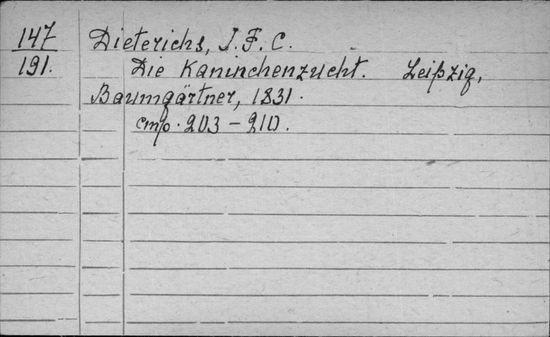 147 Dieterichs, J. F. C.
191. Die Kaninchenzucht. Leipzig,
Baumgärtner, 1831.
стр. 203-210.